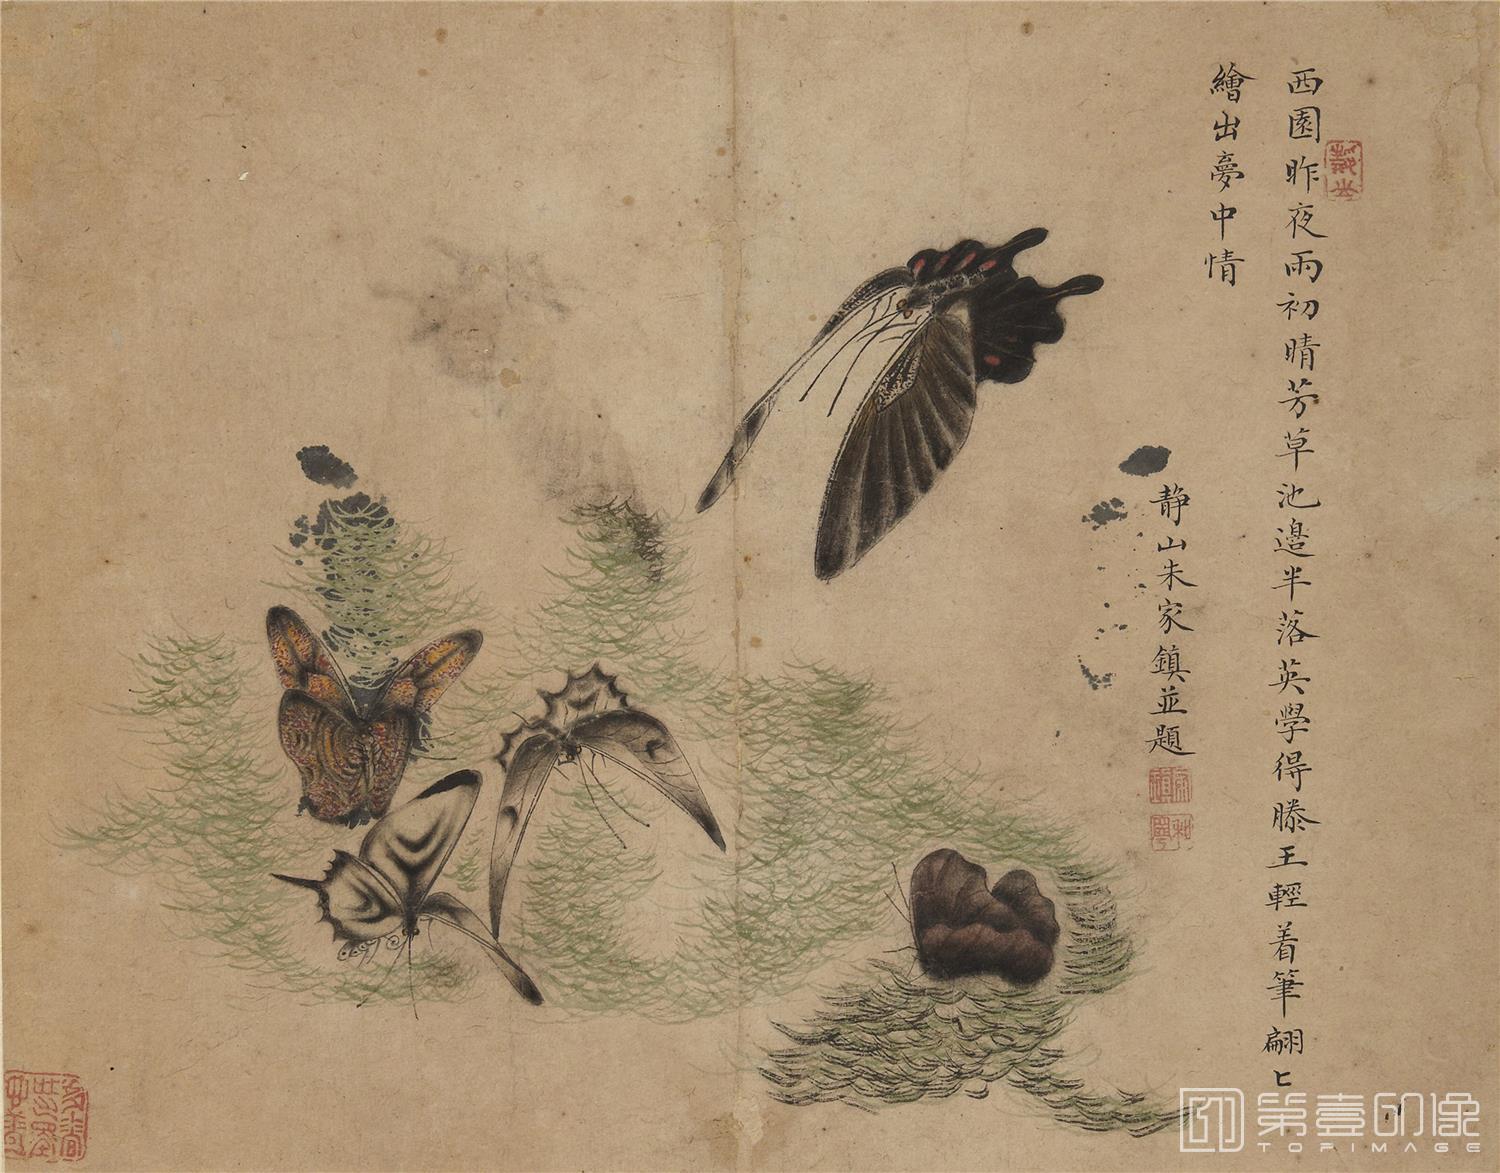 西園昨夜雨初晴芳草池邉半落英學得滕王輕着筆翩〻
繪出夢中情
静山朱家鎮並題
第壹印像
TOPIMAGE